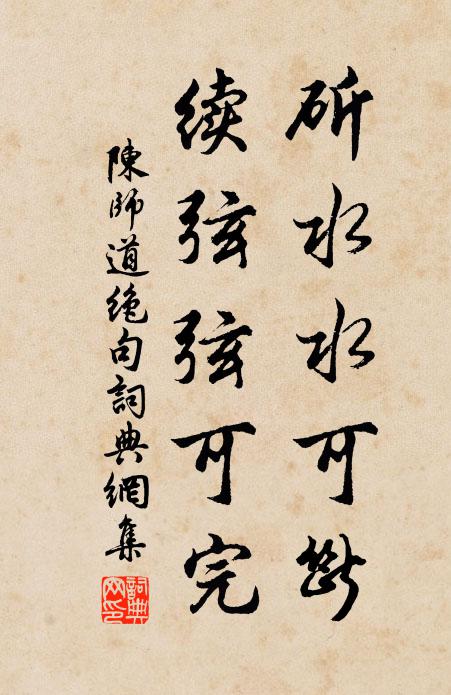 斫水水可斷
续弦弦可完
陳師道絶句詞典網集
詞典
网印